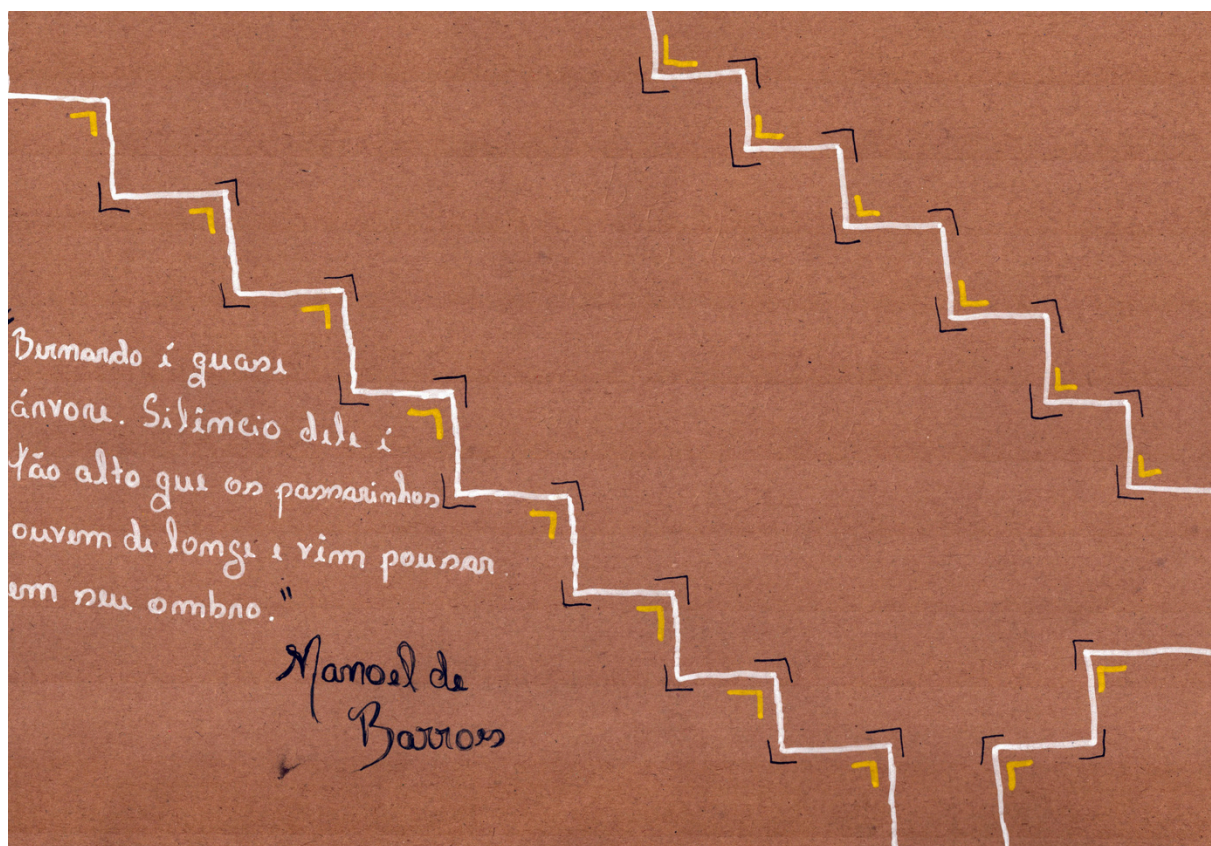 "Bernardo é quase
árvore. Silêncio dele é
tão alto que os passarinhos
ouvem de longe e vêm pousar
em seu ombro."
Manoel de
Barros